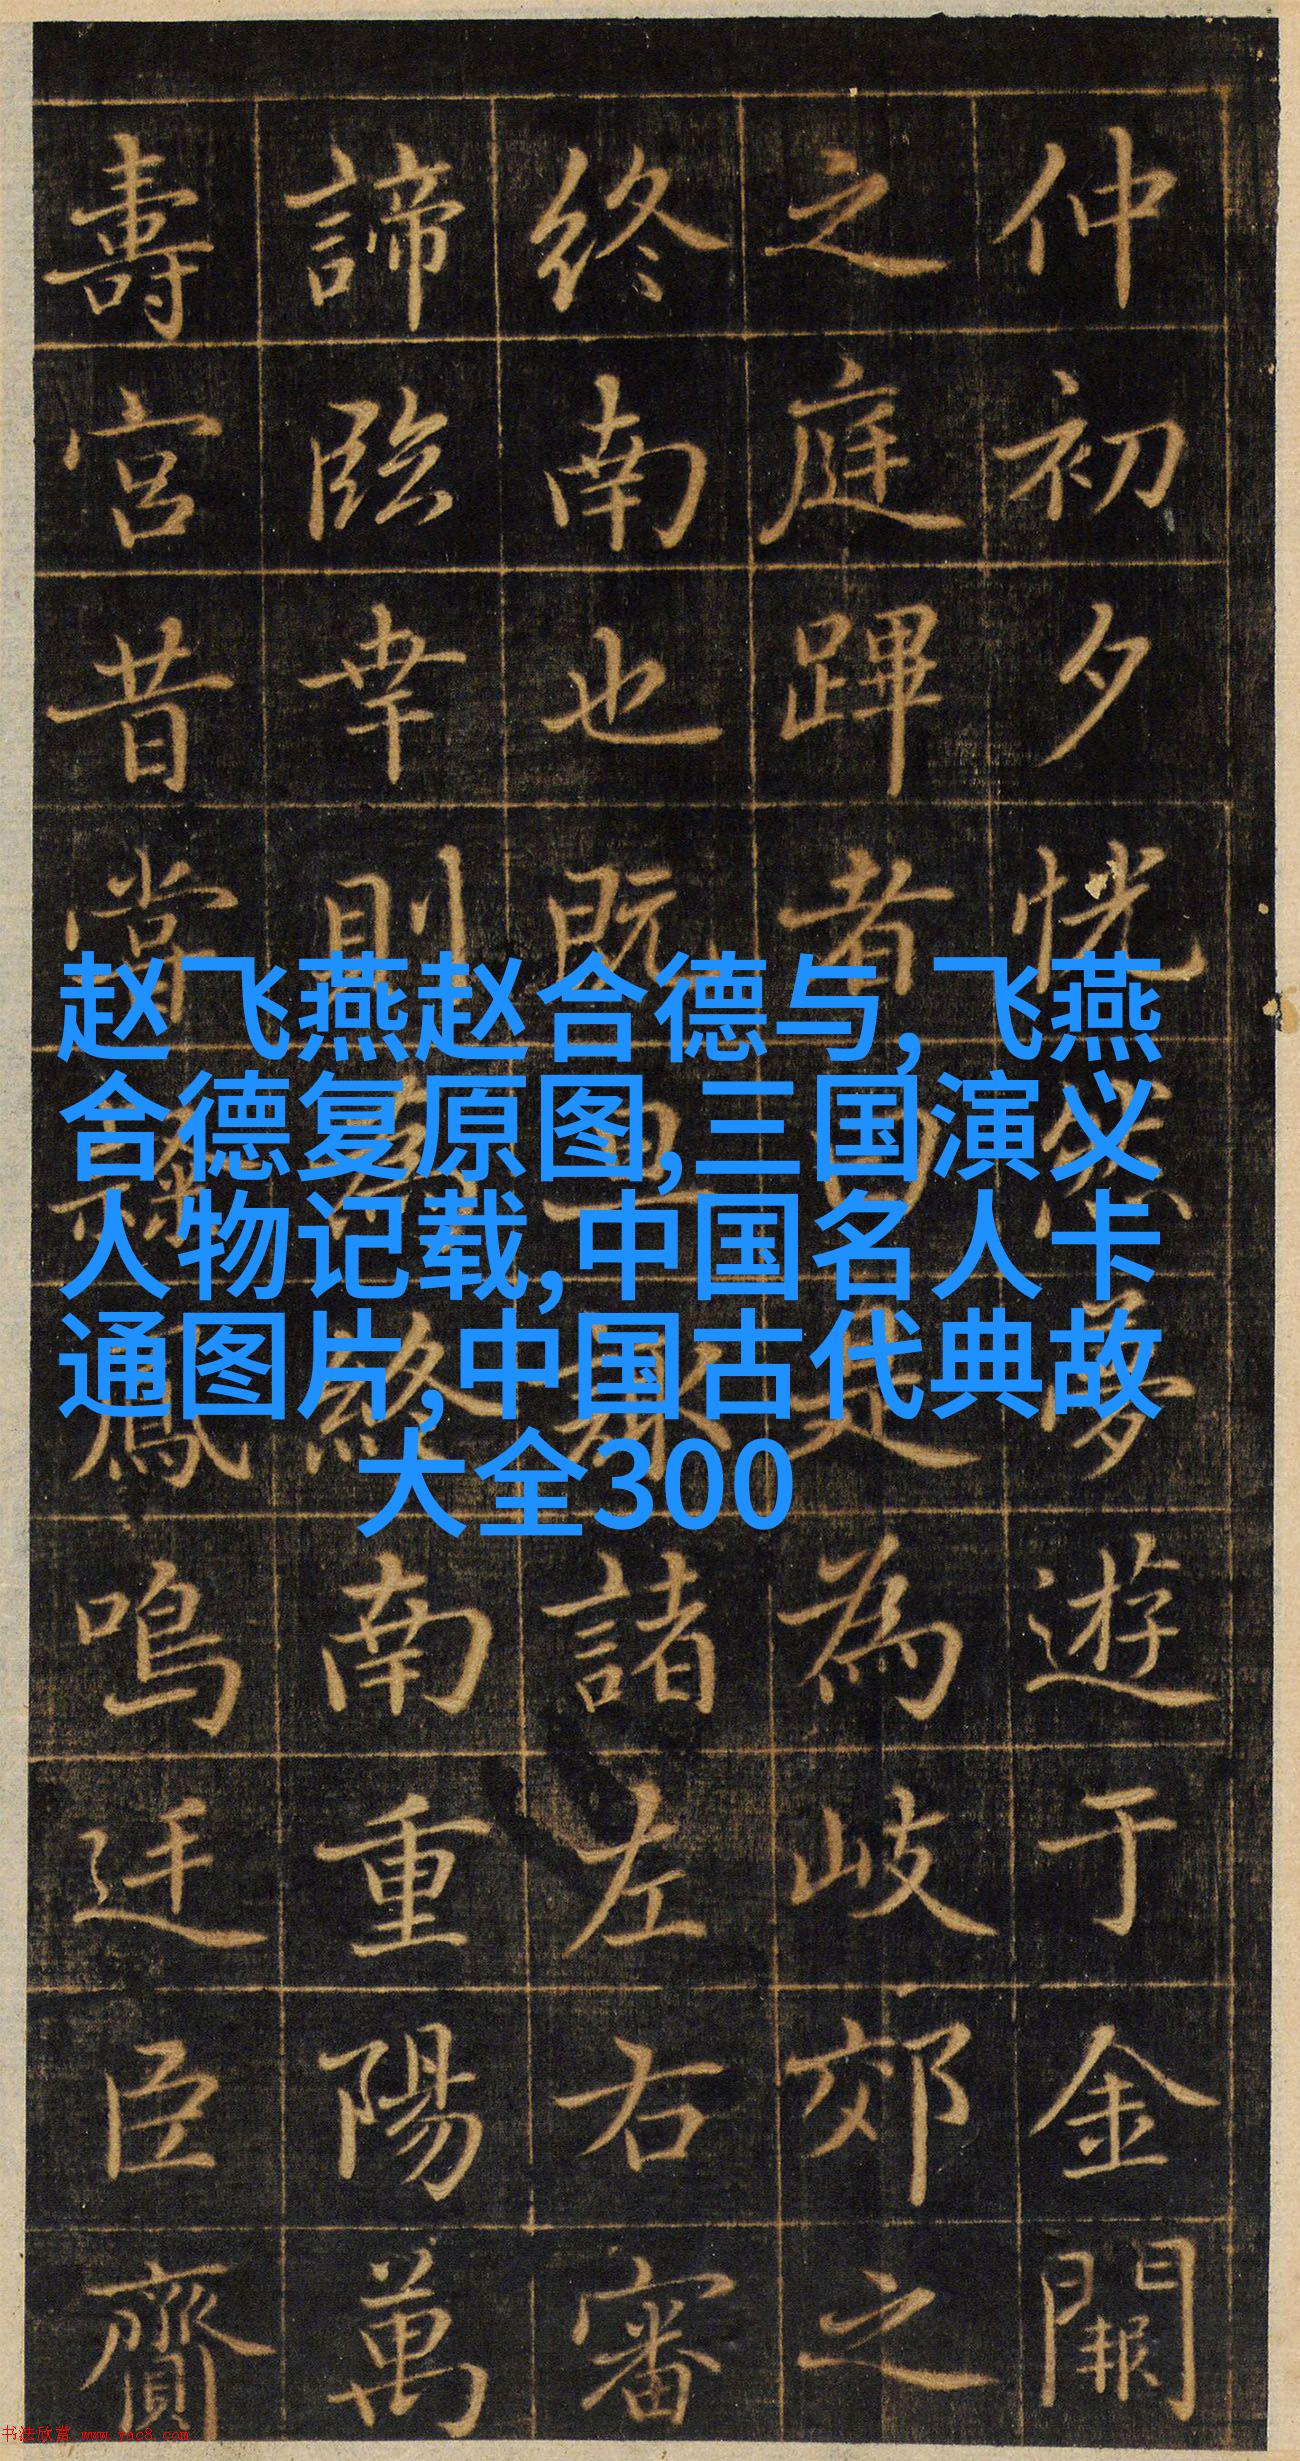 仲初夕恍然夢遊于金闕
之庭蹕者曰是為岐郊之
終南也既旦諸左右審
諦臨幸則終南重陽萬
壽宮昔嘗鳳鳴迋臣齎
赵飞燕赵合德与,飞燕
合德复原图,三国演义
人物记载,中国名人卡
通图片,中国古代典故
大全300
书法欣赏 www.yac8.com